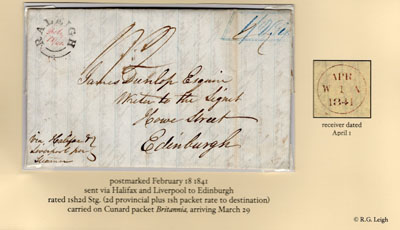 RALEIGH
James Dunlop Esquire
Writer to the Signet
Howe Street
Edinburgh
Via Halifax &
Liverpool per
Steamer
APR
1841
receiver dated
April 1
postmarked February 18 1841
sent via Halifax and Liverpool to Edinburgh
rated 1sh2d Stg. (2d provincial plus 1sh packet rate to destination)
carried on Cunard packet Britannia, arriving March 29
© R.G. Leigh